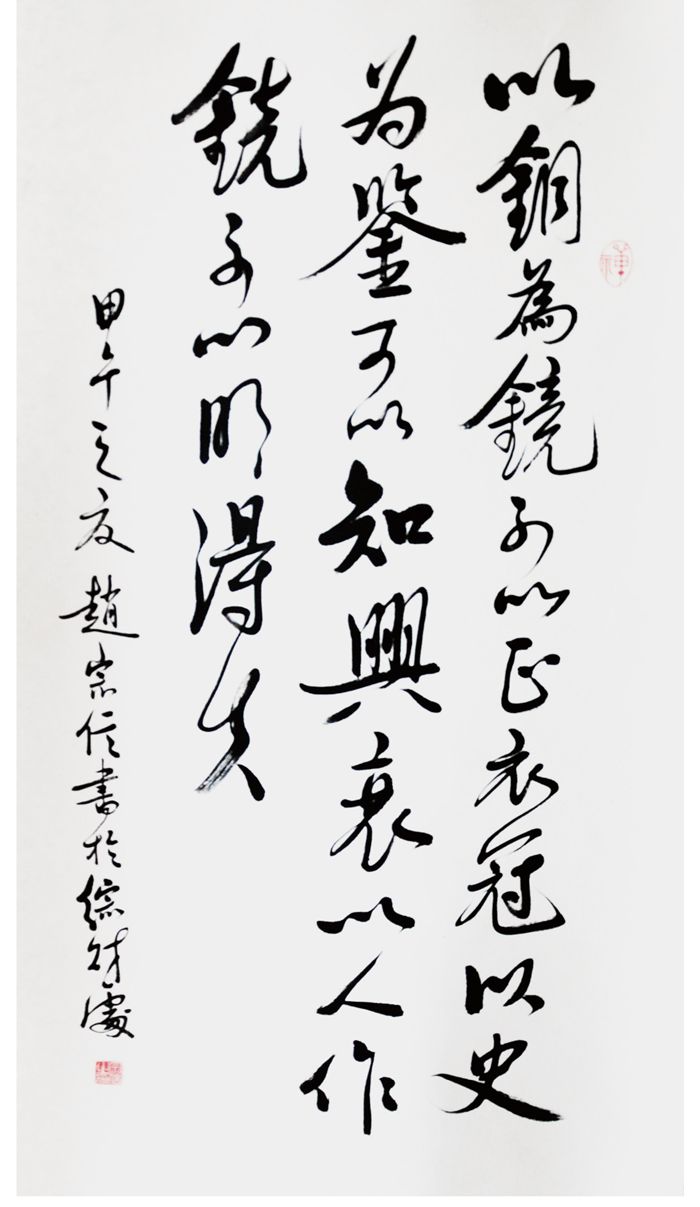 以銅為鏡可以正衣冠以史
为鉴可以知興衰以人作
鏡可以明得失
甲午之夏趙宗信書於綜財處